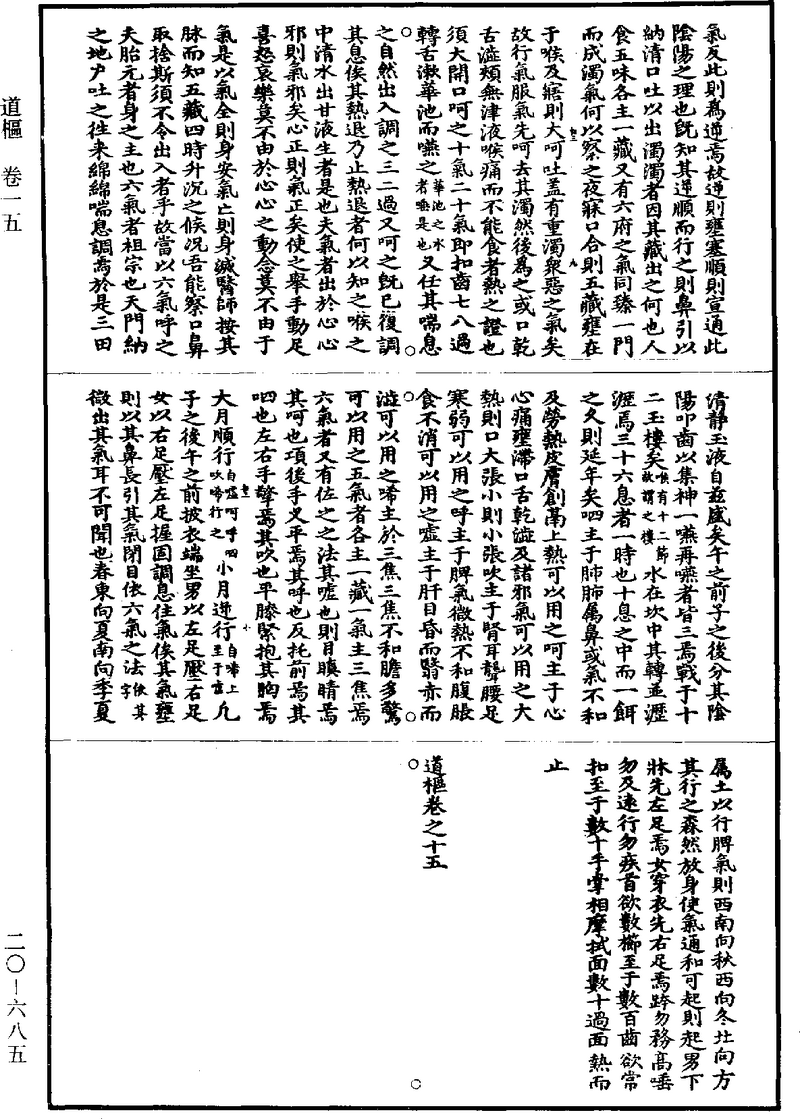 氣反此則為逆焉故逆則壅塞順則宣通此
陰陽之理也既知其逆順而行之則鼻引以
納清口吐以出濁濁者因其藏出之何也人
食五味各主一藏又有六府之氣同臻一門
而成濁氣何以察之夜寐口合則五藏壅在
子喉及寤則大呵吐蓋有重濁衆惡之氣矣
故行氣服氣先呵去其濁然後為之或口乾
舌澁頰無津液喉痛而不能食者熱之證也
須大開口呵之十氣二十氣即扣齒七八過
轉舌漱華池而嚥之華池之水者唾是也又任其喘息
之自然出入調之三二過又呵之既已復調
其息俟其熱退乃止熱退者何以知之喉之
中清水出甘液生者是也夫氣者出於心心
邪則氣邪矣心正則氣正矣使之舉手動足
喜怒哀樂莫不由於心心之動念莫不由于
氣是以氣全則身安氣亡則身滅醫師按其
脉而知五藏四時升沉之候況吾能察口鼻
取捨斯須不令出入者乎故當以六氣呼之
夫胎元者身之主也六氣者祖宗也天門納
之地户吐之往来綿綿喘息調焉於是三田
清靜玉液自兹盛矣午之前子之後分其陰
陽叩齒以集神一嚥再嚥者皆三焉戰于十
二玉樓矣喉有十二節故謂之樓水在坎中其轉並瀝
瀝焉三十六息者一時也十息之中而一餌
之久則延年矣呬主于肺肺属鼻或氣不和
及勞熱皮膚創鬲上熱可以用之呵主于心
心痛壅滯口舌乾澁及諸邪氣可以用之大
熱則口大張小則小張吹主于腎耳聾腰足
寒弱可以用之呼主于脾氣微熱不和腹脹
食不消可以用之噓主于肝目昏而翳赤而
澁可以用之唏主於三焦三焦不和膽多驚
可以用之五氣者各主一藏一氣主三焦焉
六氣者又有佐之之法其噓也則目瞋睛焉
其呵也項後手叉平焉其呼也反托前焉其
呬也左右手擎焉其吹也平膝緊抱其胸焉
大月順行自噓呵呼呬吹唏行之小月逆行自唏上至于噓凢
子之後午之前披衣端坐男以左足壓右足
女以右足壓左足握固調息住氣俟其氣壅
則以其鼻長引其氣閉目依六氣之法依其字
微出其氣耳不可聞也春東向夏南向季夏
属土以行脾氣則西南向秋西向冬北向方
其行之森然放身使氣通和可起則起男下
牀先左足焉女穿衣先右足焉跨勿務高唾
勿及速行勿疾首欲數櫛至于數百齒欲常
扣至于數十手掌相摩拭面數十過面熱而
止
道樞卷之十五
道樞　卷一五
二〇－六八五